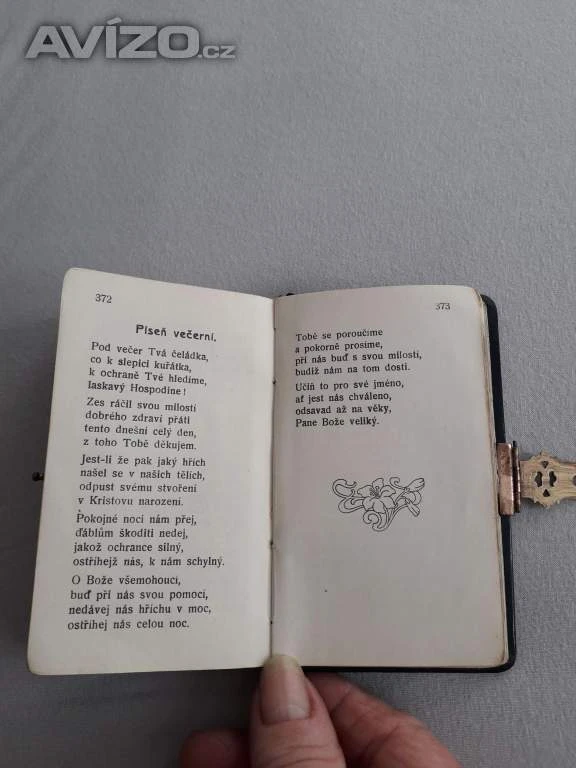 AVÍZO.cz
372
Píseň večerní.
Pod večer Tvá čeládka,
co k slepici kuřátka,
k ochraně Tvé hledíme,
laskavý Hospodine!
Zes ráčil svou milostí
dobrého zdraví přáti
tento dnešní celý den,
z toho Tobě děkujem.
Jest-li že pak jaký hřích
našel se v našich tělích,
odpust svému stvoření
v Kristovu narození.
Pokojné noci nám přej,
ďáblům škoditi nedej,
jakož ochrance silný,
ostříhejž nás, k nám schylný.
O Bože všemohoucí,
buď při nás svou pomocí,
nedávej nás hříchu v moc,
ostříhej nás celou noc.
373
Tobě se poroučíme
a pokorně prosíme,
při nás buď s svou milostí,
budiž nám na tom dosti.
Učiň to pro své jméno,
ať jest nás chváleno,
odsavad až na věky,
Pane Bože veliký.